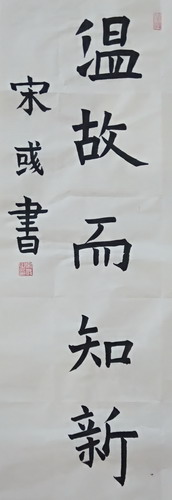 温故而知新
宋彧書